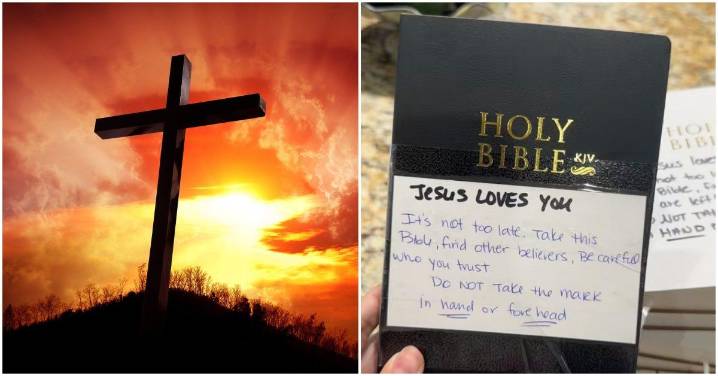 HOLY
BIBLE KJV
Jesus LOVES You
It's not too late. Take this
Bible, find other believers, Be careful
who you trust
DO NOT Take the mark
in hand or forehead
HOL
BIBL
not too
Bible,
are left
NOT
HAND